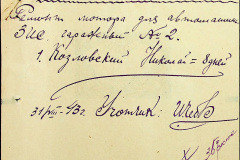 Ремонт мотора для автомашины
ЗИС гаражный № 2.
1. Козловский Николай = 8 дней
31/VIII-43г.